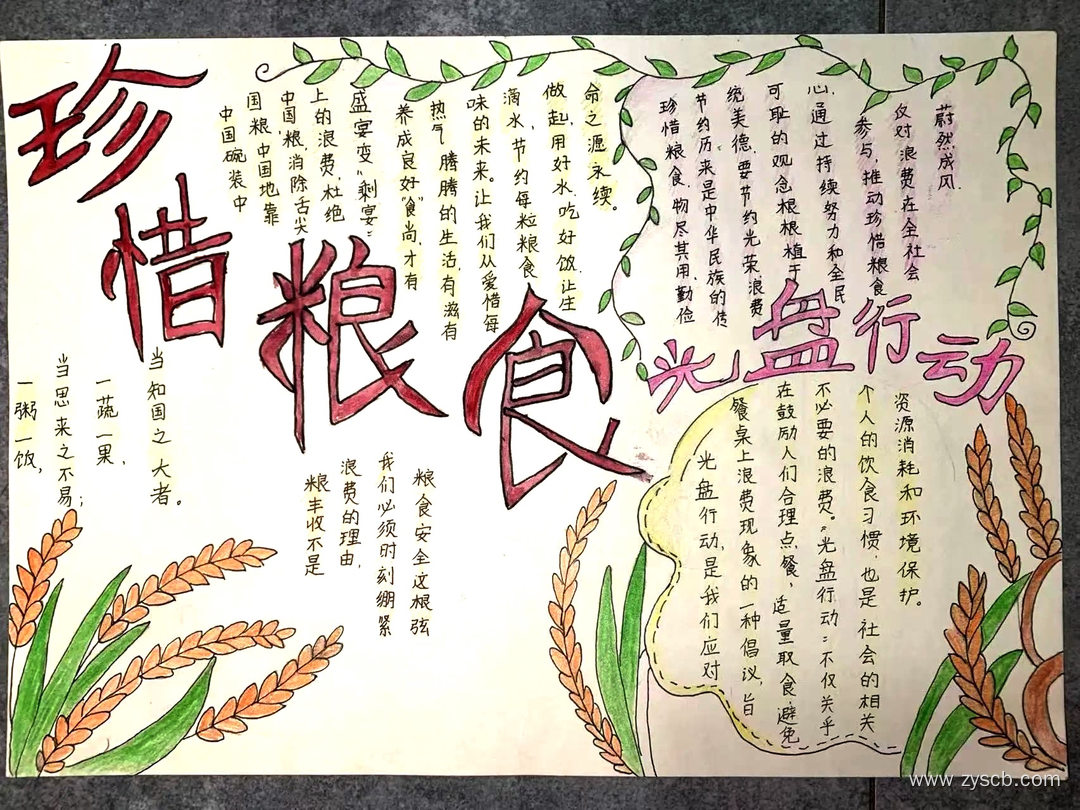 珍惜粮食
中国碗装中
国粮,中国地靠
中国粮,消除舌尖
上的浪费,杜绝
盛宴变“剩宴”
养成良好“食”尚,才有
热气腾腾的生活,有滋有
味的未来。让我们从爱惜每
滴水,节约每粒粮食
做起,用好水,吃好饭,让生
命之源永续。
珍惜粮食,物尽其用,勤俭
节约历来是中华民族的传
统美德,要节约光荣,浪费
可耻的观念根根植于
心,通过持续努力和全民
参与,推动珍惜粮食
仅对浪费在全社会
蔚然成风.
一粥一饭,
当思来之不易;
一蔬一果,
当知国之大者。
粮丰收不是
浪费的理由,
我们必须时刻绷紧
粮食安全这根弦
光盘行动
光盘行动,是我们应对
餐桌上浪费现象的一种倡议,旨
在鼓励人们合理点餐,适量取食,避免
不必要的浪费。“光盘行动”不仅关乎
个人的饮食习惯,也是社会的相关
资源消耗和环境保护。
www.zyscb.com